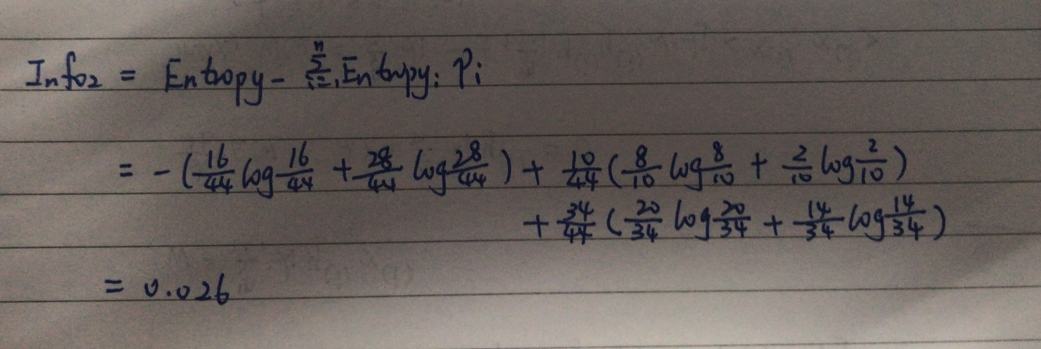 Info2 = Entropy - Σ_{i=1}^{n} Entropy_i P_i
= -(16/44 log 16/44 + 28/44 log 28/44) + 10/44 (8/10 log 8/10 + 2/10 log 2/10)
+ 34/44 (20/34 log 20/34 + 14/34 log 14/34)
= 0.026